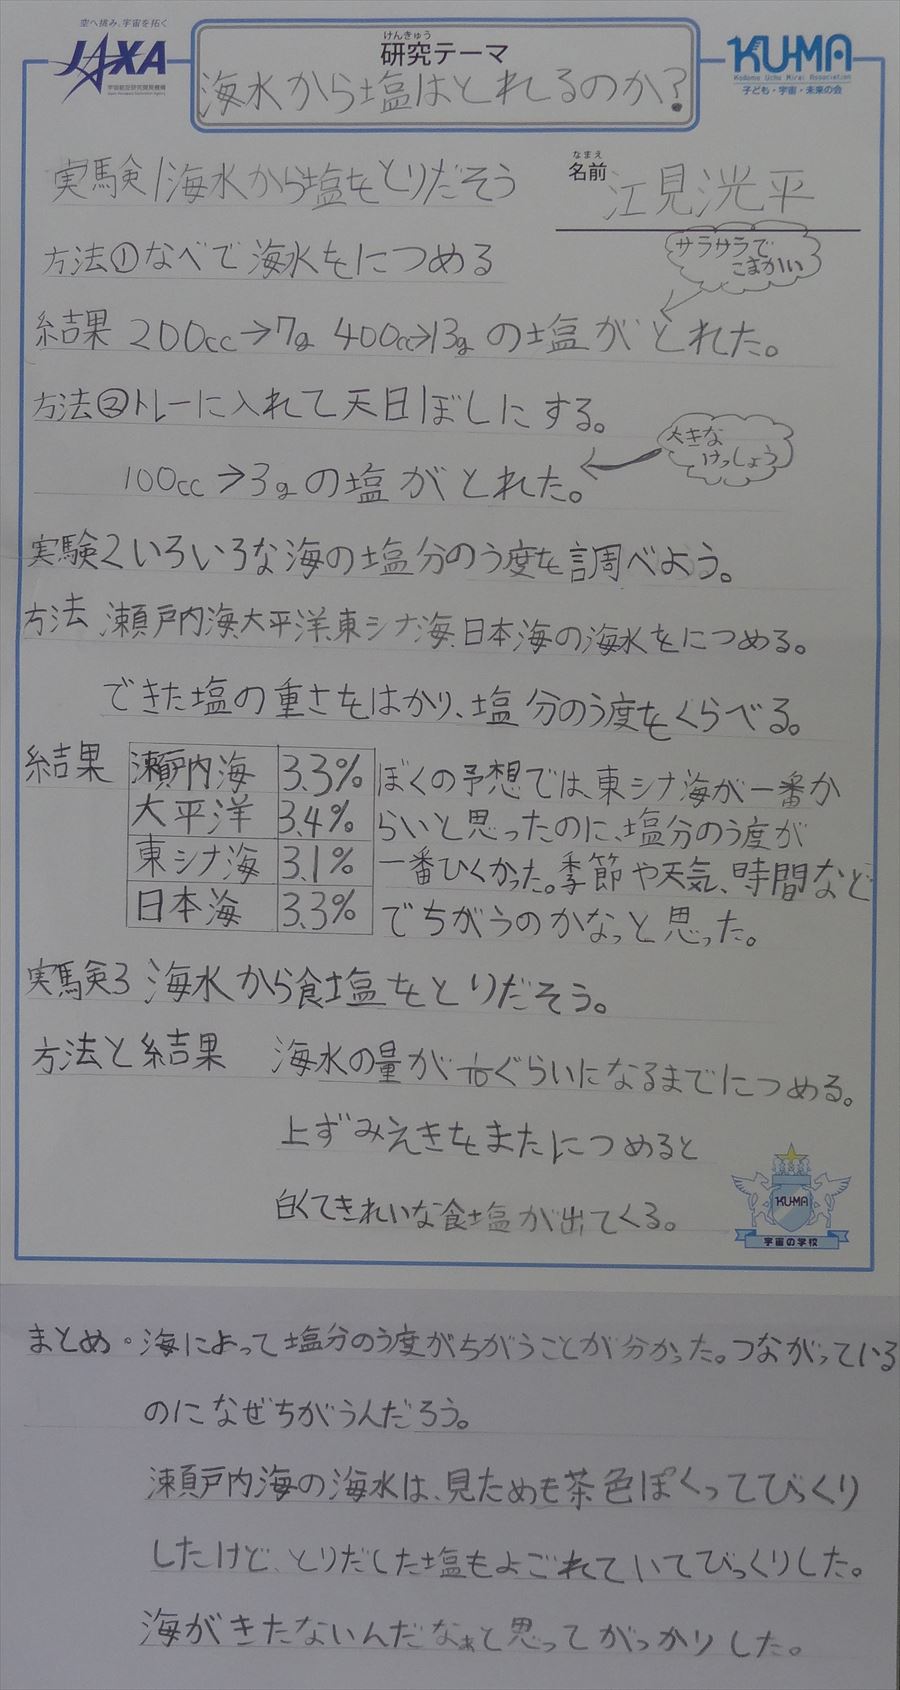 空へ挑み、宇宙を拓く
JAXA
宇宙航空研究開発機構
けんきゅう
研究テーマ
海水から塩はとれるのか?
KU-MA
Kodomo Uchu Mirai Association
子ども・宇宙・未来の会
なまえ
名前
江見洸平
実験1海水から塩をとりだそう
方法①なべで海水をにつめる
サラサラで
こまかい
結果 200cc→7g 400cc→13gの塩がとれた。
方法②トレーに入れて天日ぼしにする。
大きな
けっしょう
100cc→3gの塩がとれた。
実験2いろいろな海の塩分のう度を調べよう。
方法 瀬戸内海、大平洋、東シナ海、日本海の海水をにつめる。
できた塩の重さをはかり、塩分のう度をくらべる。
結果
瀬戸内海 3.3%
大平洋 3.4%
東シナ海 3.1%
日本海 3.3%
ぼくの予想では、東シナ海が一番か
らいと思ったのに、塩分のう度が
一番ひくかった。季節や天気、時間など
でちがうのかなっと思った。
実験3 海水から食塩をとりだそう。
方法と結果 海水の量が1/10ぐらいになるまでにつめる。
上ずみえきをまたにつめると
白くてきれいな食塩が出てくる。
KU-MA
宇宙の学校
まとめ。海によって塩分のう度がちがうことが分かった。つながっている
のになぜちがうんだろう。
瀬戸内海の海水は、見ためも茶色ぽくってびっくり
したけど、とりだした塩もよごれていてびっくりした。
海がきたないんだなぁと思ってがっかりした。